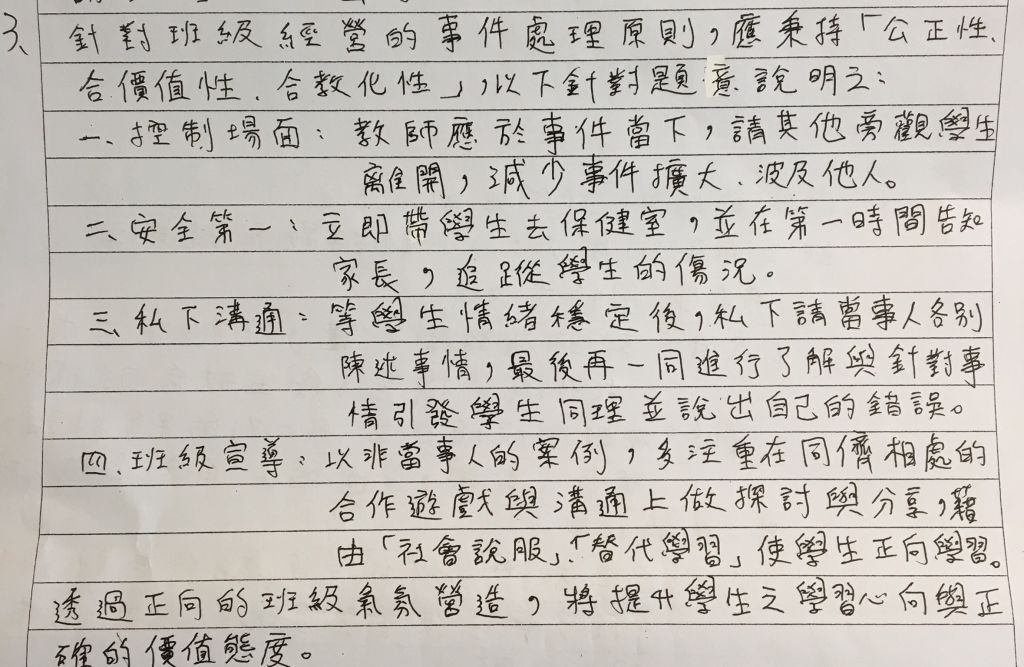 3、針對班級經營的事件處理原則，應秉持「公正性、
合價值性、合教化性」，以下針對題意說明之：
一、控制場面：教師應於事件當下，請其他旁觀學生
離開，減少事件擴大、波及他人。
二、安全第一：立即帶學生去保健室，並在第一時間告知
家長，追蹤學生的傷況。
三、私下溝通：等學生情緒穩定後，私下請當事人各別
陳述事情，最後再一同進行了解與針對事
情引發學生同理並說出自己的錯誤。
四、班級宣導：以非當事人的案例，多注重在同儕相處的
合作遊戲與溝通上做探討與分享，藉
由「社會說服」、「替代學習」使學生正向學習。
透過正向的班級氣氛營造，將提升學生之學習心向與正
確的價值態度。